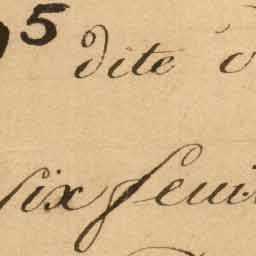 5 dite
six feuil